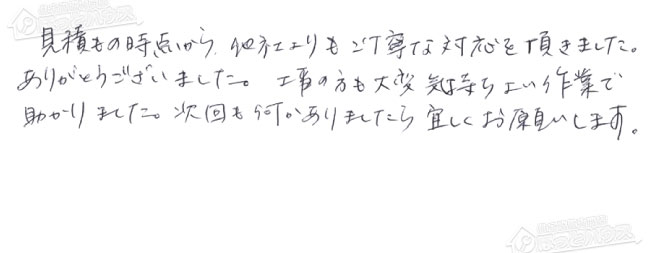 見積もの時点から、他社よりもご丁寧な対応を頂きました。
ありがとうございました。工事の方も大変気持ちよい作業で
助かりました。次回も何かありましたら宜しくお願いします。